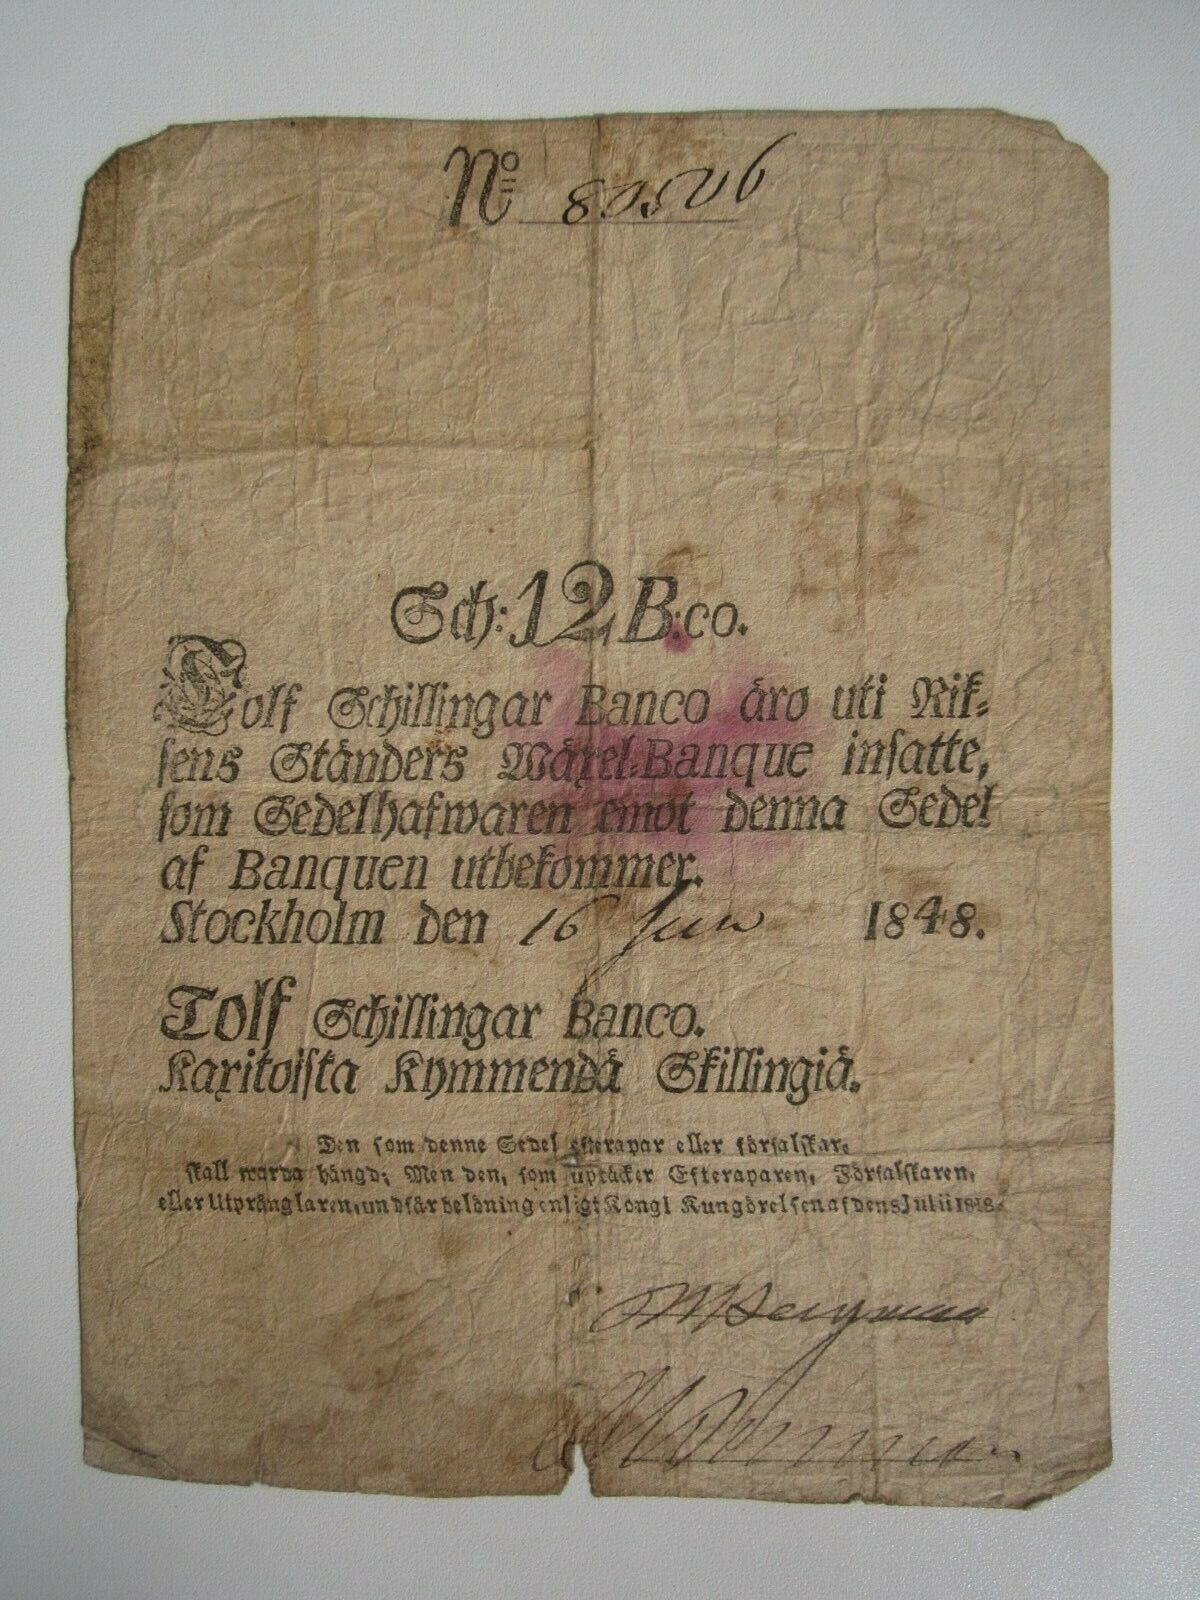 No 80506
Sch: 12 B:co.
Tolf Schillingar Banco äro uti Rik=
sens Ständers Wäxel=Banque insatte,
som Sedelhafwaren emot denna Sedel
af Banquen utbekommer.
Stockholm den 16 Juni 1848.
Tolf Schillingar Banco.
Kaxitoista Kymmendä Skillingiä.
Den som denne Sedel efterapar eller förfalskar,
skall warda hängd; Men den, som uptäcker Efteraparen, Förfalskaren,
eller Utprånglaren, undfår belöning enligt Kongl Kungörelsen af den 8 Julii 1818.
Bergman